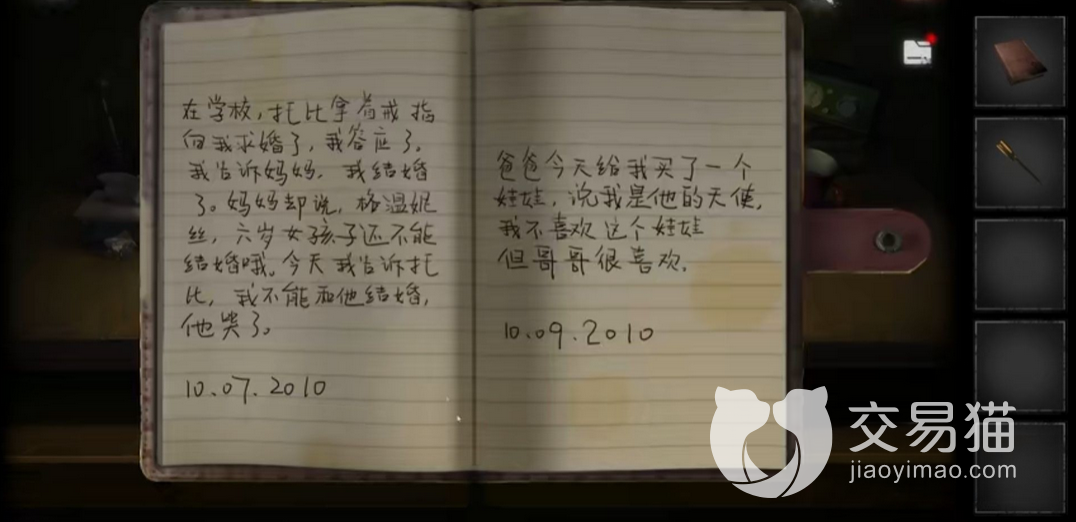 在学校，托比拿着戒指
向我求婚了，我答应了。
我告诉妈妈，我结婚
了。妈妈却说，格温妮
丝，六岁女孩子还不能
结婚哦。今天我告诉托
比，我不能和他结婚，
他哭了。
10.07.2010
爸爸今天给我买了一个
娃娃，说我是他的天使，
我不喜欢这个娃娃
但哥哥很喜欢。
10.09.2010
交易猫
jiaoyimao.com